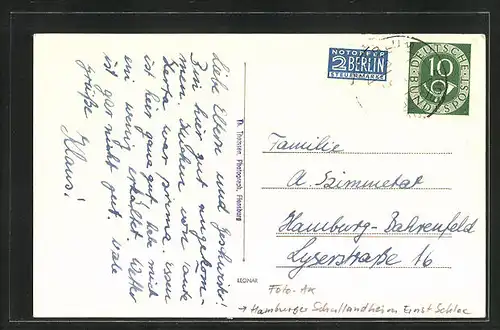 Liebe Eltern und Geschwister!
Bin hier gut angekom-
men. Kuchen von Tante
Herta war prima. Essen
ist hier ganz gut. Habe mich
ein wenig erkältet. Wetter
ist gar nicht gut. Viele
Grüße Klaus!
Th. Thomsen, Photograph, Flensburg
LEONAR
NOTOPFER
2 BERLIN
STEUERMARKE
DEUTSCHE
10
BUNDESPOST
Familie
A. Zimmetat
Hamburg-Bahrenfeld
Lyserstraße 16
Foto-AK
→ Hamburger Schullandheim Ernst Schlee